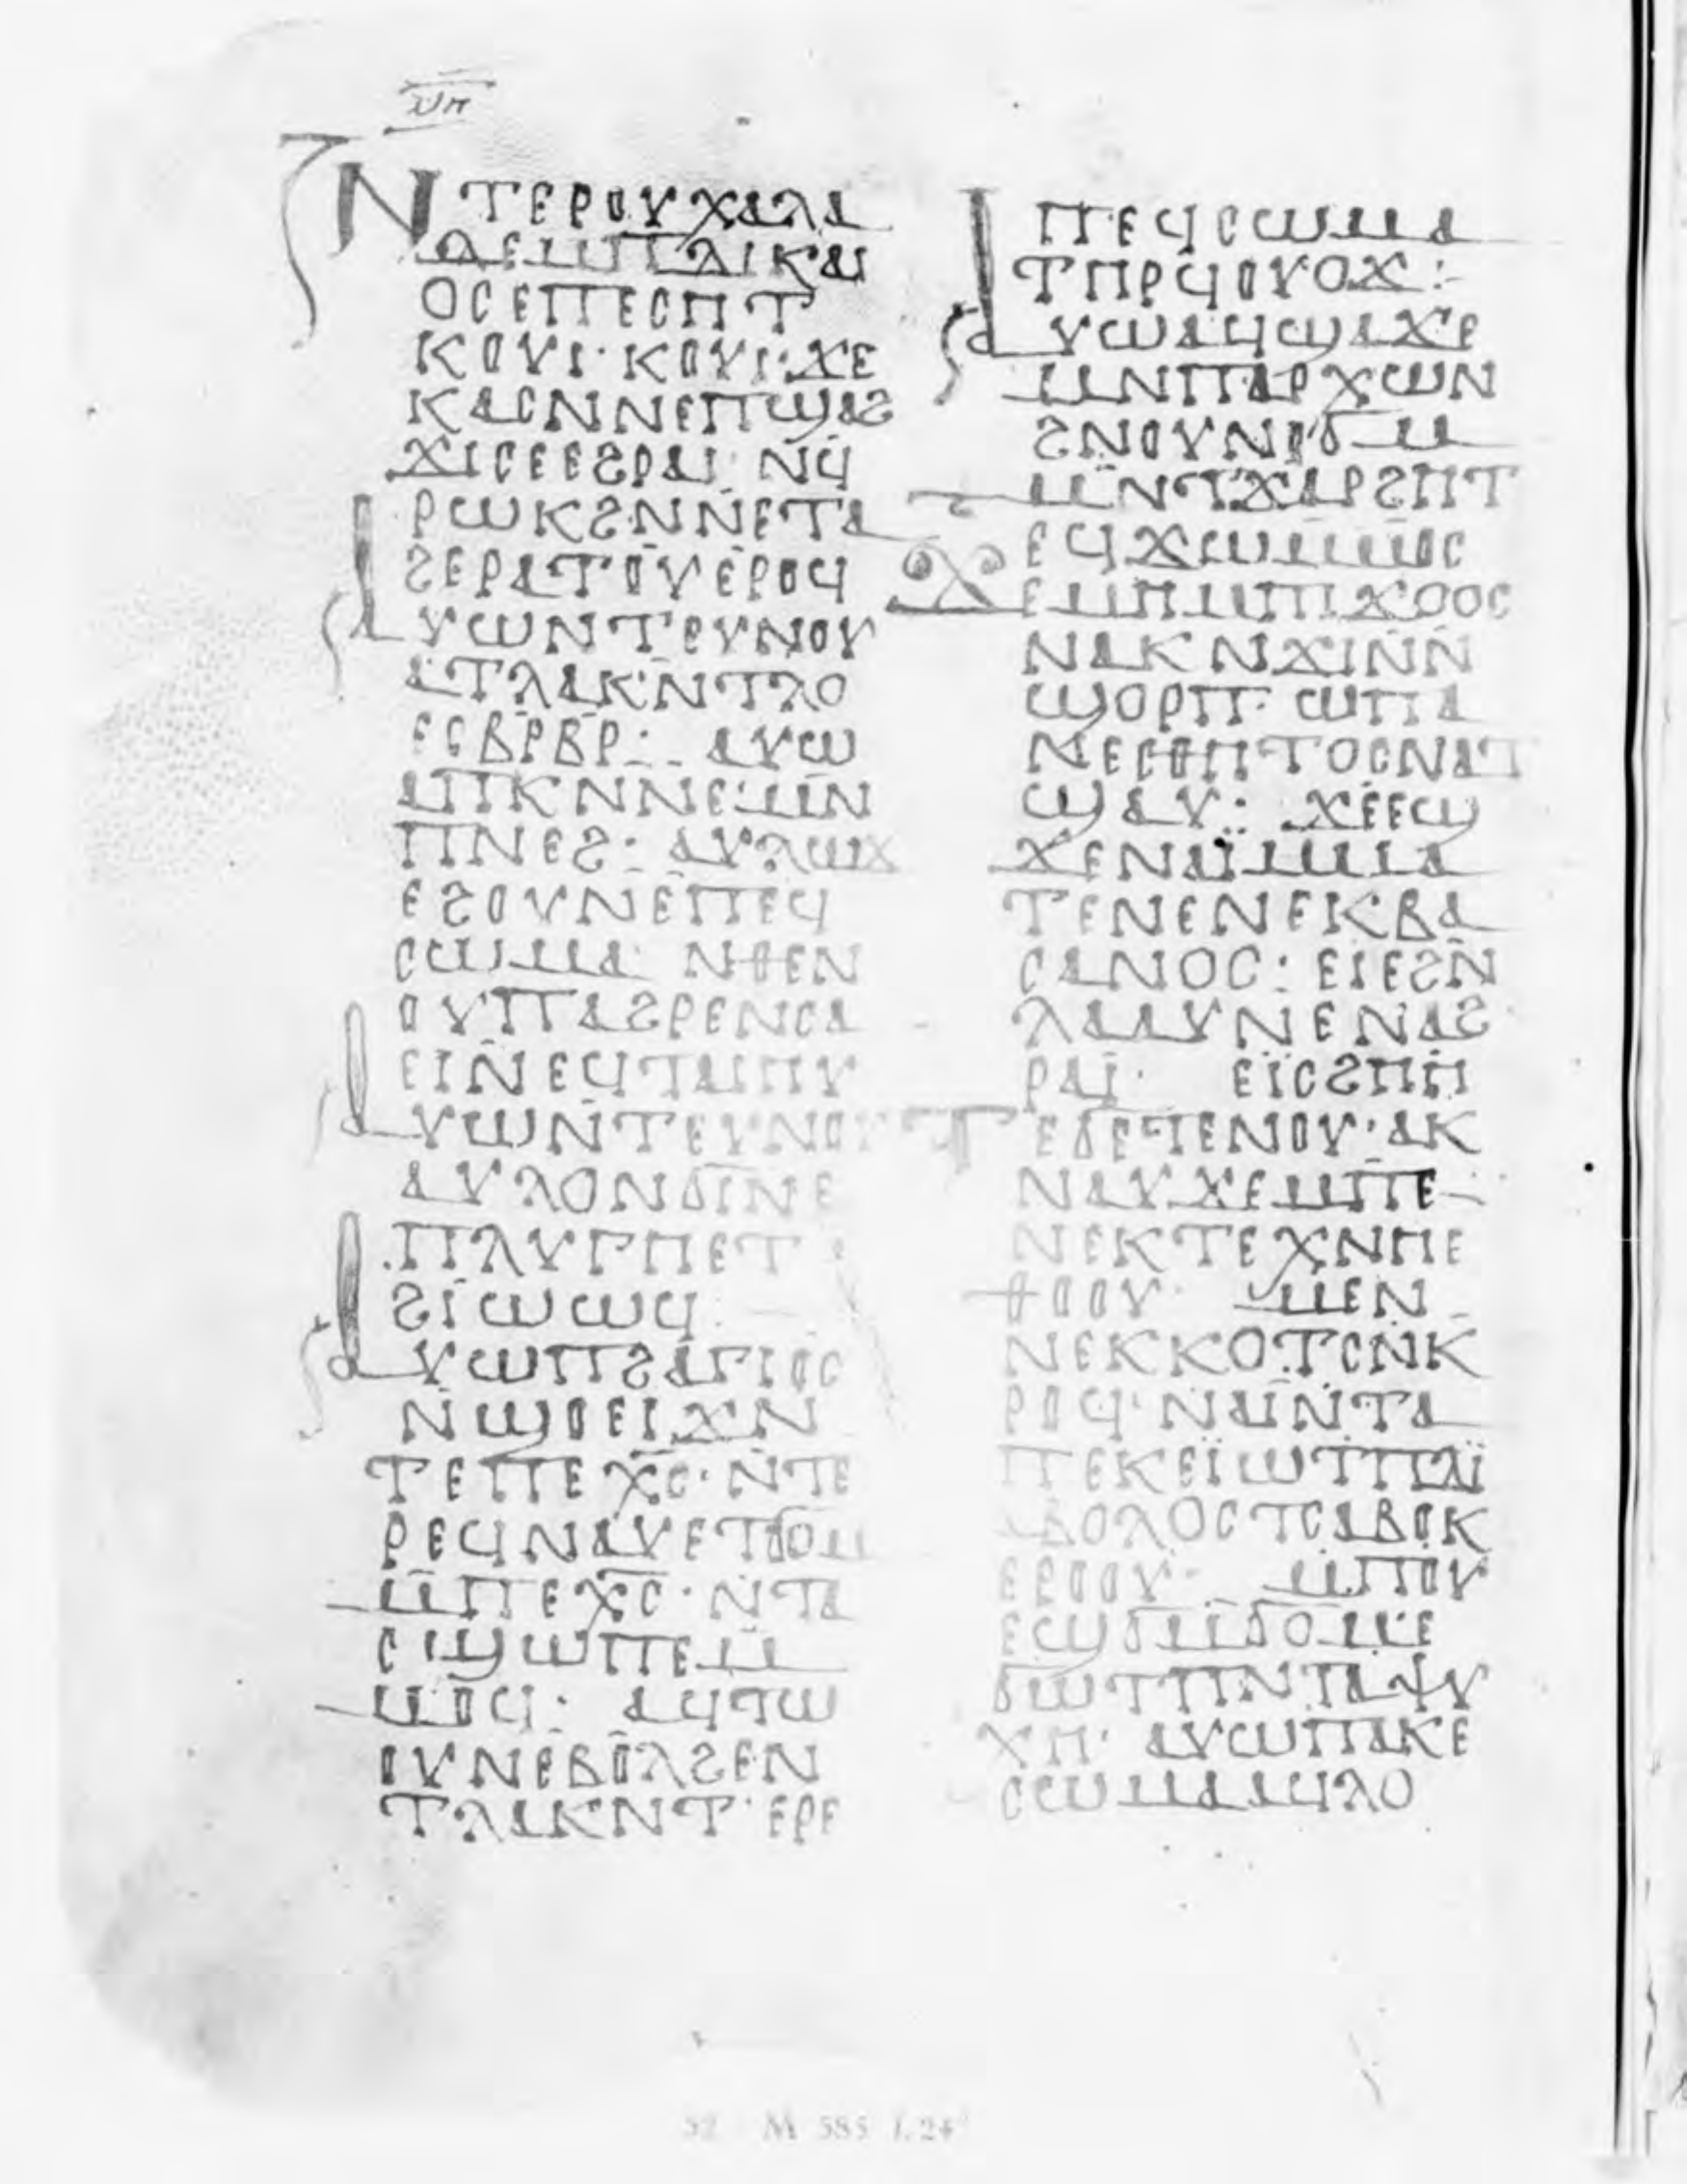 ⲚⲦⲈⲢⲞⲨⲬⲀⲖⲀ
ⲆⲈⲘⲠⲆⲒⲔⲀⲒ
ⲞⲤⲈⲠⲈⲤⲎⲦ
ⲔⲞⲨⲒ·ⲔⲞⲨⲒ·ϪⲈ
ⲔⲀⲤⲚⲚⲈⲠϢⲀϨ
ϪⲒⲤⲈⲈϨⲢⲀⲒ ⲚϤ
ⲢⲰⲔϨⲚⲚⲈⲦⲀ
ϨⲈⲢⲀⲦⲞⲨⲈⲢⲞϤ
ⲀⲨⲰⲚⲦⲈⲨⲚⲞⲨ
ⲀⲦⲖⲀⲔⲚⲦⲖⲞ
ⲈⲤⲂⲢⲂⲢ: ⲀⲨⲰ
ⲀⲠⲔⲚⲚⲈ·ⲘⲚ
ⲠⲚⲈϨ: ⲀⲨⲖⲰϪ
ⲈϨⲞⲨⲚⲈⲠⲈϤ
ⲤⲰⲘⲀ ⲚⲐⲈⲚ
ⲞⲨⲠⲀϨⲢⲈⲚⲤⲀ
ⲈⲒⲚⲈϤⲦⲀⲒⲎⲨ
ⲀⲨⲰⲚⲦⲈⲨⲚⲞⲨ
ⲀⲨⲖⲞⲚϬⲒⲚⲈ
ⲠⲖⲨⲄⲎⲈⲦ
ϨⲒⲰⲰϤ
ⲀⲨⲰⲠϨⲀⲄⲒⲞⲤ
ⲚϢⲞⲈⲒϪⲚ
ⲦⲈⲠⲈⲬⲤ·ⲚⲦⲈ
ⲢⲈϤⲚⲀⲨⲈⲦϬⲞⲘ
ⲘⲠⲈⲬⲤ·ⲚⲦⲀ
ⲤϢⲰⲠⲈⲘ
ⲘⲞϤ: ⲀϤⲦⲰ
ⲞⲨⲚⲈⲂⲞⲖϨⲈⲚ
ⲦⲖⲀⲔⲚⲦ·ⲈⲢⲈ
ⲠⲈϤⲤⲰⲘⲀ
ⲦⲎⲢϤⲞⲨⲞϪ:
ⲀⲨⲰⲀϤϢⲀϪⲈ
ⲘⲚⲠⲀⲢⲬⲰⲚ
ϨⲚⲞⲨⲚⲞϬⲘ
ⲘⲚⲦϪⲀⲢϨⲎⲦ
ⲈϤϪⲰⲘⲘⲞⲤ
ϪⲈⲘⲎⲘⲠⲒϪⲞⲞⲤ
ⲚⲀⲔ ⲚϪⲒⲚⲚ
ϢⲞⲢⲠ· ⲰⲠⲀ
ⲚⲈⲤⲐⲎⲦⲞⲤⲚⲀⲦ
ϢⲀⲨ: ϪⲈⲈϢ
ϪⲈⲚⲀⲒⲘⲘⲀ
ⲦⲈⲚⲈⲚⲈⲔⲂⲀ
ⲤⲀⲚⲞⲤ: ⲈⲒⲈϨⲚ
ⲖⲀⲀⲨⲚⲈⲚⲀϨ
ⲢⲀⲒ· ⲈⲒⲤϨⲎⲎ
ⲦⲈϬⲈⲦⲈⲚⲞⲨ·ⲀⲔ
ⲚⲀⲨϪⲈⲘⲠⲈ
ⲚⲈⲔⲦⲈⲬⲚⲎⲈ
ⲐⲞⲞⲨ· ⲘⲈⲚ
ⲚⲈⲔⲔⲞⲦⲤⲚⲔ
ⲢⲞϤ·ⲚⲀⲒⲚⲦⲀ
ⲠⲈⲔⲈⲒⲰⲦⲠⲆⲒ
ⲀⲂⲞⲖⲞⲤⲦⲤⲀⲂⲞⲔ
ⲈⲢⲞⲞⲨ· ⲘⲠⲞⲨ
ⲈϢϬⲘϬⲞⲘⲈ
ϬⲰⲦⲠⲚⲦⲀⲮⲨ
ⲬⲎ· ⲀⲨⲰⲠⲀⲔⲈ
ⲤⲰⲘⲀⲀϤⲖⲞ
52 M 585 f.24ᵛ